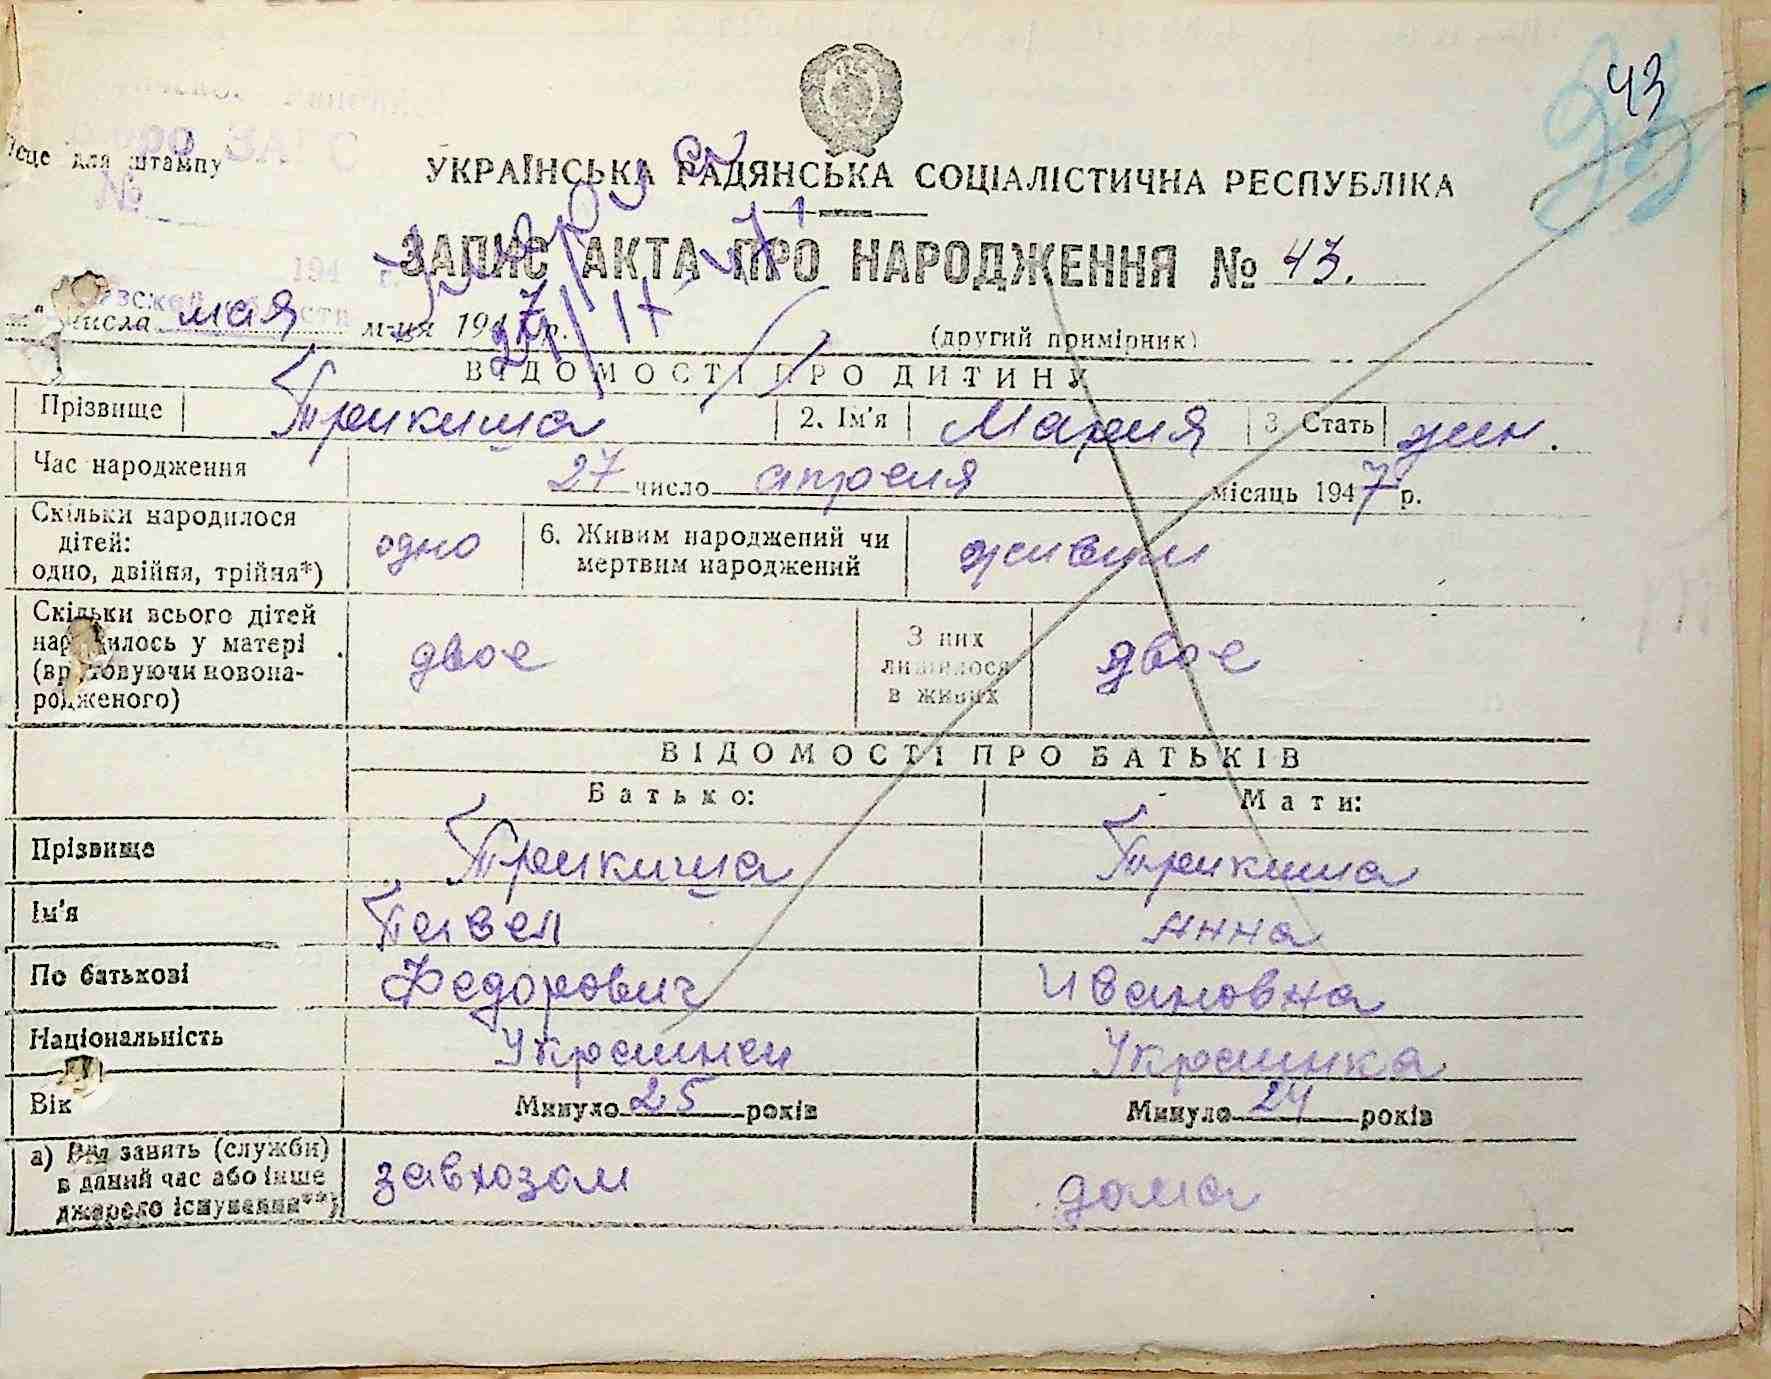 43
23
бюро ЗАГС
ісце для штампу
№
УКРАЇНСЬКА РАДЯНСЬКА СОЦІАЛІСТИЧНА РЕСПУБЛІКА
ЗАПИС АКТА ПРО НАРОДЖЕННЯ № 43.
194 г.
числа мая м-ця 1947 р.
(другий примірник)
ВІДОМОСТІ ПРО ДИТИНУ
Прізвище Трикиша 2. Ім'я Мария 3. Стать жин.
Час народження 27 число апреля місяць 1947 р.
Скільки народилося дітей: одно, двійня, трійня*) одно 6. Живим народжений чи мертвим народжений живим
Скільки всього дітей народилось у матері (враховуючи новонародженого) двое З них лишилося в живих двое
ВІДОМОСТІ ПРО БАТЬКІВ
Батько: Мати:
Прізвище Трикиша Трикиша
Ім'я Павел Анна
По батькові Федорович Ивановна
Національність Украинец Украинка
Вік Минуло 25 років Минуло 24 років
а) Вид занять (служби) в даний час або інше джерело існування**) завхозом дома